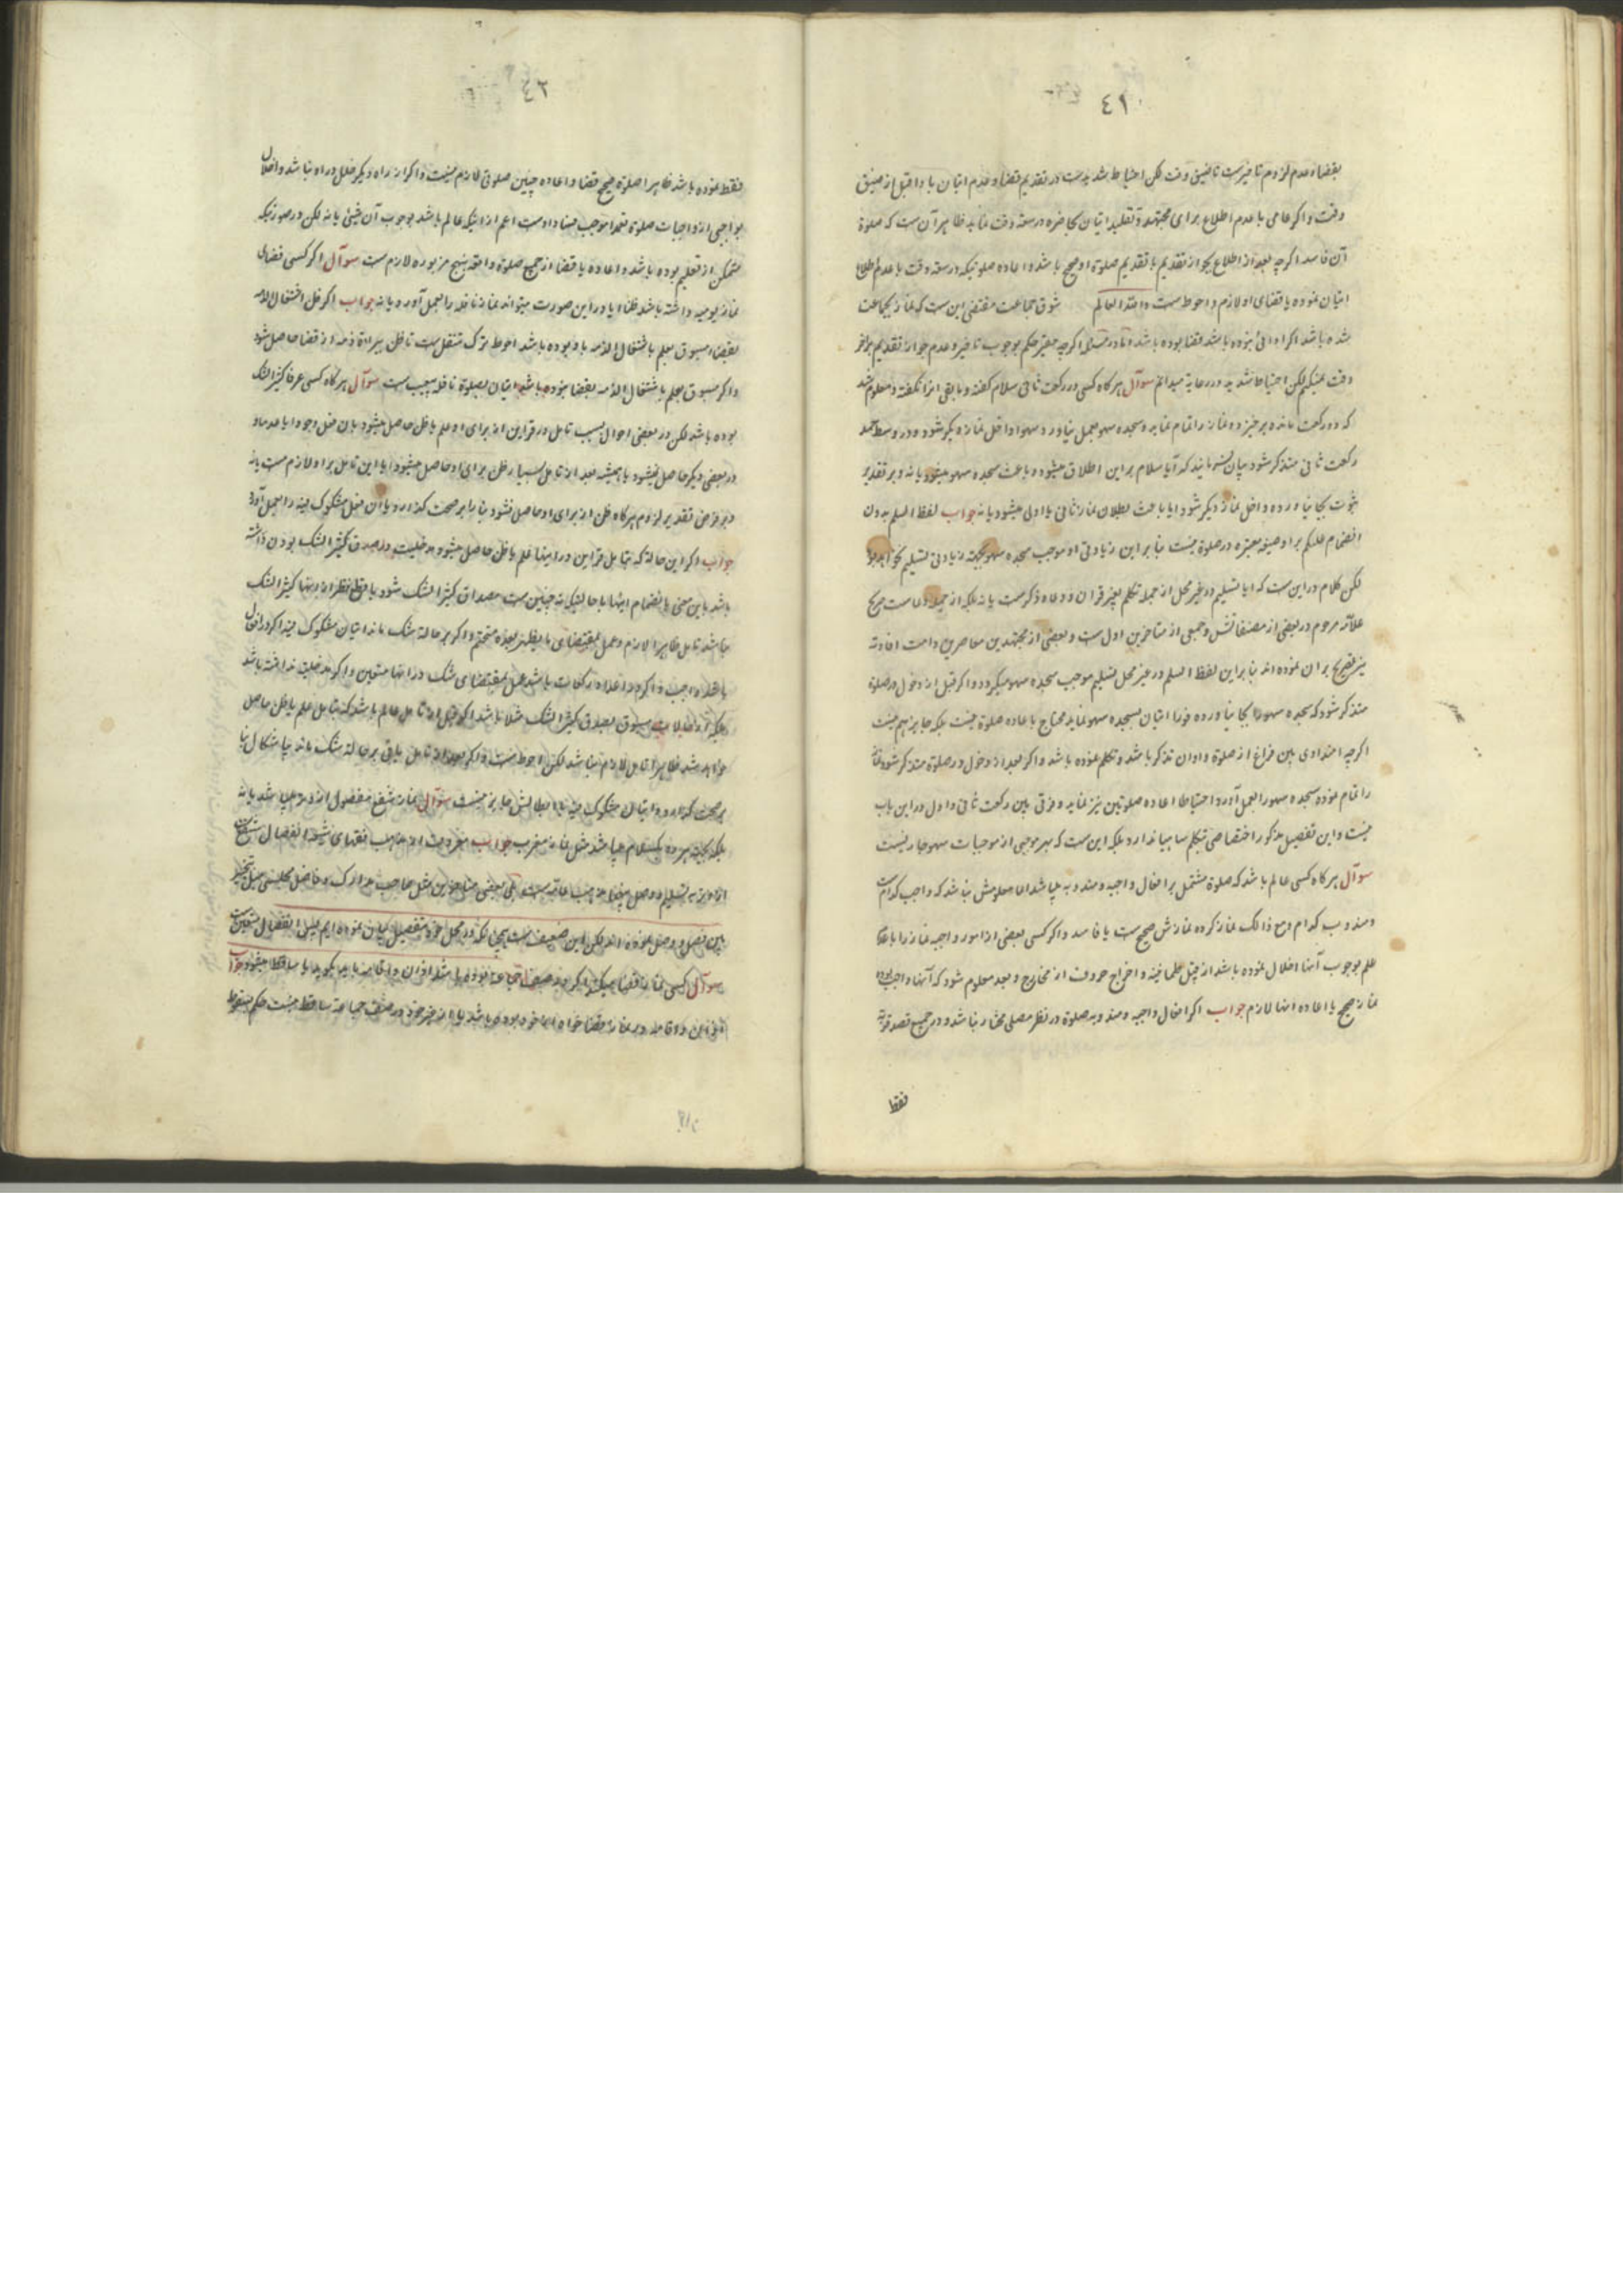 ٤١
بقضاء عدم لزوم تاخیرست تا ضیق وقت لکن احتیاط شدیدست در تقدیم قضا و عدم اتیان بادا قبل از ضیق
وقت و اکر عامی با عدم اطلاع برای مجتهد و تقلید اتیان بحاضره در سعه وقت نماید ظاهر آن ست که صلوة
آن فاسد اکرچه بعد از اطلاع بجواز تقدیم با تقدیم صلوة او صحیح باشد و اعاده صلوتیکه در سعه وقت با عدم اطلاع
اتیان نموده یا قضای او لازم و احوط ست والله العالم شوق جماعت مقتضی این ست که نماز بجماعت
شده باشد اکر ادائی بوده باشد قضا بوده باشد و اکرچه حکم بوجوب تاخیر و عدم جواز تقدیم بر آخر
وقت نمیکنم لکن احتیاط شدید در رعایة میدانم سوآل هرکاه کسی در رکعت ثانی سلام کفته و مابقی انرا نکفته و معلوم شد
که دو رکعت مانده برخیزد و نماز را تمام نماید و سجده سهو بعمل نیاورد و سهوا داخل نماز دیکر شود و در وسط حمد
رکعت ثانی متذکر شود بیان فرمایند که آیا سلام بر این اطلاق میشود و باعث سجده سهو میشود یا نه و بر تقدیر
ثبوت بجا نیاورده و داخل نماز دیکر شود ایا باعث بطلان نماز ثانی یا اولی میشود یا نه جواب لفظ السلم بدون
انضمام علیکم بر او صیغه معتبره در صلوة نیست بنابراین زیادتی او موجب سجده سهو بجهة زیادتی تسلیم نخواهد بود
لکن کلام در این ست که ایا تسلیم در غیر محل از جمله تکلم بغیر قران و دعاء و ذکرست یا نه بلکه از جمله دعاست صریح
علامه مرحوم در بعضی از مصنفاتش و جمعی از متاخرین اول ست و بعضی از مجتهدین معاصرین دامت افادته
نیز تصریح بران نموده اند بنابراین لفظ السلم در غیر محل تسلیم موجب سجده سهو میکردد و اکر قبل از دخول در صلوة
متذکر شود که سجده سهو را بجا نیاورده فورا اتیان بسجده سهو نماید محتاج باعاده صلوة نیست بلکه جایز هم نیست
اکرچه امتدادی بین فراغ از صلوة و اوان تذکر باشد و تکلم نموده باشد و اکر بعد از دخول در صلوة متذکر شود نماز
را تمام نموده سجده سهو را بعمل آورد و احتیاطا اعاده صلوتین نیز نماید و فرقی بین رکعت ثانی و اول در این باب
نیست و این تفصیل مذکور اختصاصی بتکلم ساهیا ندارد بلکه این ست که بهر موجبی از موجبات سهو جاریست
سوآل هرکاه کسی عالم باشد که صلوة مشتمل بر افعال واجبه و مندوبه میباشد اما معلومش نباشد که واجب کدام ست
و مندوب کدام و مع ذالک نماز کرده نمازش صحیح ست یا فاسد و اکر کسی بعضی از امور واجبه نماز را با عدم
علم بوجوب آنها اخلال نموده باشد از قبیل طمانینه و اخراج حروف از مخارج و بعد معلوم شود که آنها واجب بوده
نماز صحیح یا اعاده انها لازم جواب اکر افعال واجبه و مندوبه صلوة در نظر مصلی مختار نباشد و در جمیع قصد قربة
فقط
٤٢
فقط نموده باشد ظاهرا صلوة صحیح قضا و اعاده چنین صلوتی لازم نیست و اکر از راه دیکر خلل در او نباشد و اخلال
بواجبی از واجبات صلوة تعمدا موجب فساد اوست اعم از اینکه عالم باشد بوجوب آن شیئ یا نه لکن در صورتیکه
متمکن از تعلیم بوده باشد و اعاده یا قضا از جمیع صلوة واقعه بنهج مزبوره لازم ست سوآل اکر کسی قضای
نماز یومیه داشته باشد ظنا ایا در این صورت میتواند نماز نافله را بعمل آورد یا نه جواب اکر ظن اشتغال ذمه
بقضاء مسبوق بعلم باشتغال الذمه باو بوده باشد احوط ترک متنفل ست تا ظن ببراءة ذمه از قضا حاصل شود
و اکر مسبوق بعلم باشتغال الذمه بقضا نبوده باشد اتیان بصلوة نافله بیعیب ست سوآل هرکاه کسی عرفا کثیر الشک
بوده باشد لکن در بعضی احوال بسبب تامل در قراین از برای او علم یا ظن حاصل میشود بان فعل وجودا یا عدما و
در بعضی دیکر حاصل نمیشود یا همیشه بعد از تامل بسیار ظن برای او حاصل میشود ایا این تامل بر او لازم ست یا نه
و بر فرض تقدیر لزوم هرکاه ظن از برای او حاصل نشود بنا را بر صحت کذارد یا آن فعل مشکوک فیه را بعمل آورد
جواب اکر این حالة که بتامل قراین در اینها علم یا ظن حاصل میشود مدخلیت در صدق کثیر الشک بودن داشته
باشد باین معنی بانضمام اینها با حالتیکه نه چنین ست مصداق کثیر الشک شود با قطع نظر از اینها کثیر الشک
نباشد تامل ظاهرا لازم و عمل بمقتضای ما یظهر بعده متحتم و اکر بر حالة شک ماند اتیان مشکوک فیه اکر در افعال
باشد واجب و اکر در اعداد رکعات باشد عمل بمقتضای شک در انها متعین و اکر مدخلیت نداشته باشد
خواهد شد ظاهرا تامل لازم نباشد لکن احوط ست و اکر بعد از تامل باقی بر حالة شک ماند بنا
بر صحت کذارد و اتیان مشکوک فیه یا ابطالش جایز نیست سوآل نماز شفع مفصول از وتر میباشد یا نه
بلکه هر سه بیکسلام میباشد مثل نماز مغرب جواب معروف از مذهب فقهای شیعه انفصال شفع
از وتر به تسلیم و وصل بینهما مذهب عامه ست بلی بعضی متاخرین مثل صاحب مدارک و فاضل مجلسی میل بتخییر
بین فصل و وصل نموده اند لکن این ضعیف ست چنانکه در محل خود بتفصیل بیان نموده ایم پس انفصال متعین ست
سوآل کسی نماز قضا میکند اکر در صف جماعة بوده باشد اذان و اقامه باید بکوید یا ساقط میشود جواب
اذان و اقامه در نماز قضا خواه از خود بوده باشد یا از غیر خود در صف جماعة ساقط نیست حکم سقوط